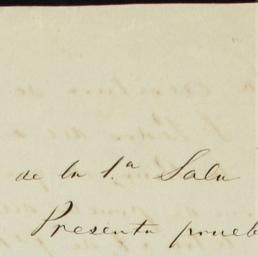 de la 1.ª Sala
Presenta prueb